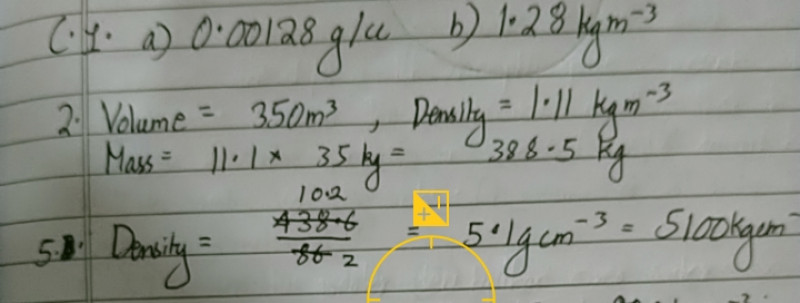 C.Y. a) 0.00128 g/cc b) 1.28 kgm⁻³
2. Volume = 350m³, Density = 1.11 kgm⁻³
Mass = 11.1 × 35 kg = 388.5 kg
10.2
5. Density = 438.6 / 86 2 = 5.1gcm⁻³ = 5100kgcm⁻